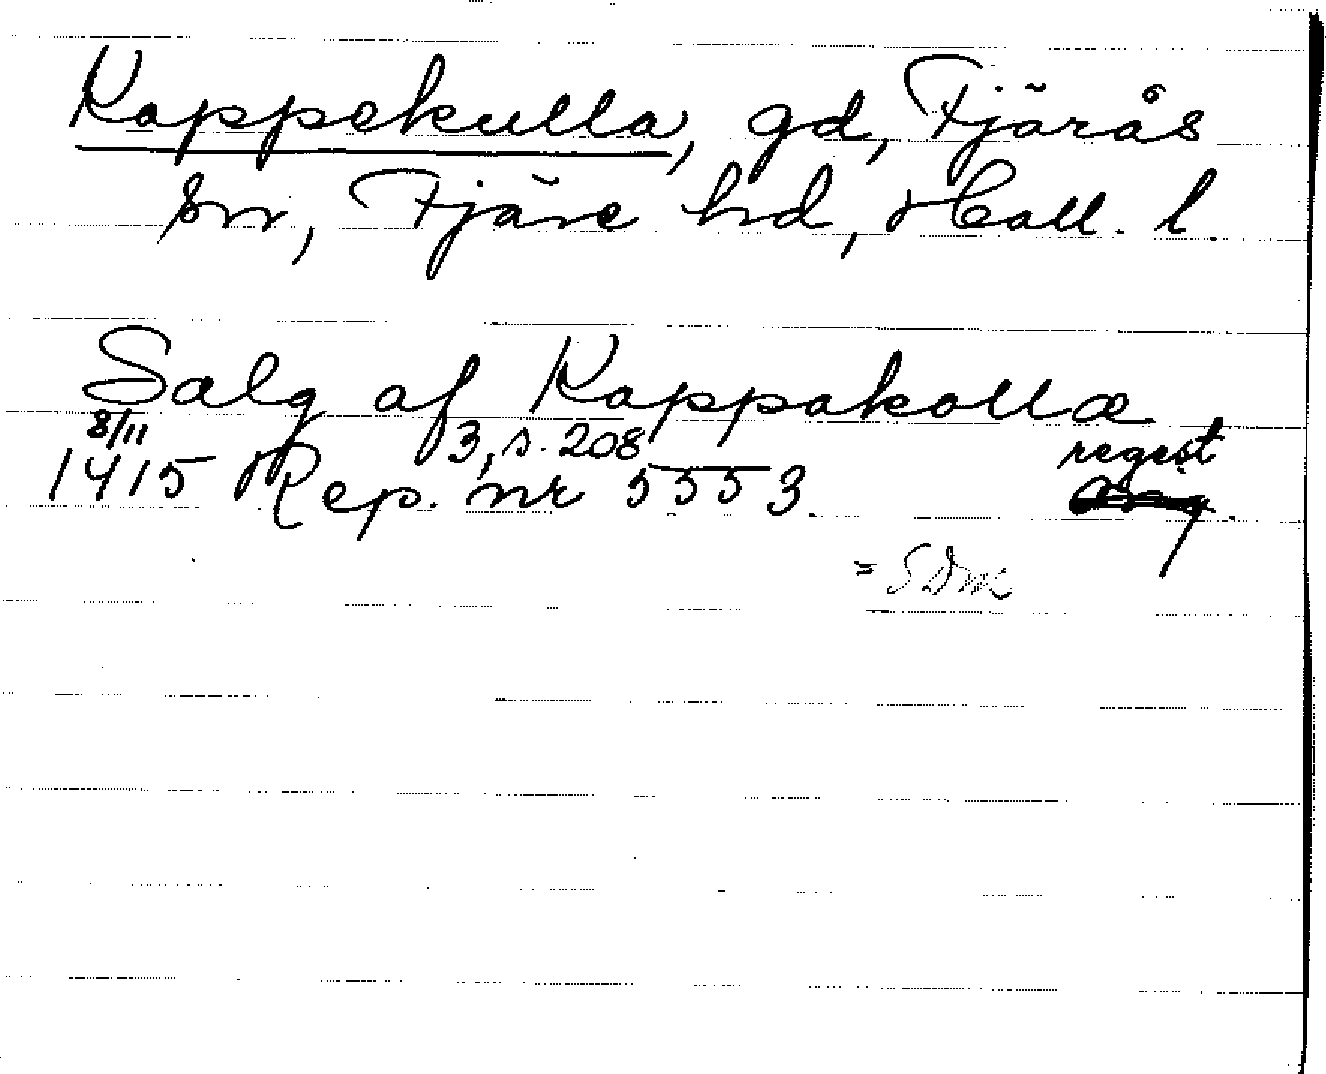 Kappekulla, gd, Fjärås
sn, Fjäre hd, Hall. l.
Salg af Kappakollæ
8/11 3, s. 208 regest
1415 Rep. nr 5553.
= SDm